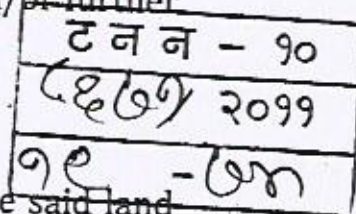 /or further
ट न न - १०
२०११
१९ - ७४
e said land